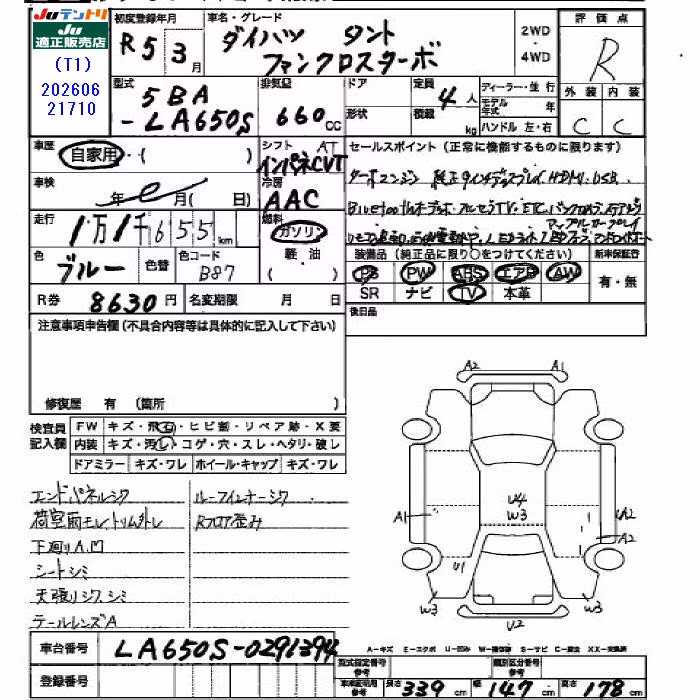 Juテントリ
Ju
適正販売店
(T1)
202606
21710
初度登録年月
R5 3月
車名・グレード
ダイハツ タント
ファンクロスターボ
2WD
・
4WD
評価点
R
外装 内装
C C
型式
5BA
-LA650S
排気量
660 cc
ドア
形状
定員
4人
積載
kg
ディーラー・並行
モデル年式 年
ハンドル 左・右
車歴
自家用・( )
シフト AT
インパネCVT
車検
年 月( 日)
冷房
AAC
セールスポイント(正常に機能するものに限ります)
ターボエンジン 純正9インチディスプレイ、HDMI、USB、
Bluetoothオーディオ、フルセグTV、ETC、バックカメラ、
アップルカープレイ
走行
1万1千655km
燃料
ガソリン
軽・油
( )
色
ブルー
色替
色コード
B87
装備品(純正品に限り○をつけてください)
新車保証書
PS PW ABS エアB AW
SR ナビ TV 本革
有・無
R券 8630円
名変期限 月 日
後日品
注意事項申告欄(不具合内容等は具体的に記入して下さい)
修復歴 有 (箇所 )
検査員
記入欄
FW キズ・飛石・ヒビ割・リペア跡・X要
内装 キズ・汚し・コゲ・穴・スレ・ヘタリ・破レ
ドアミラー キズ・ワレ ホイール・キャップ キズ・ワレ
エンドパネルシワ
荷室雨モレ、トリム外レ
下廻りA、凹
シートシミ
天張りシワ、シミ
テールレンズA
ルーフインナーシワ
Rフロア歪み
A2 A1
U4
W3
A1
A2
A2
U1
W3
W3
U2
車台番号 LA650S-0291394
登録番号
A-キズ E-エクボ U-凹み W-補修跡 S-サビ C-腐食 XX-交換済
型式指定番号
参考
類別区分番号
参考
車検証明用
参考
長さ 339cm
幅 147cm
高さ 178cm